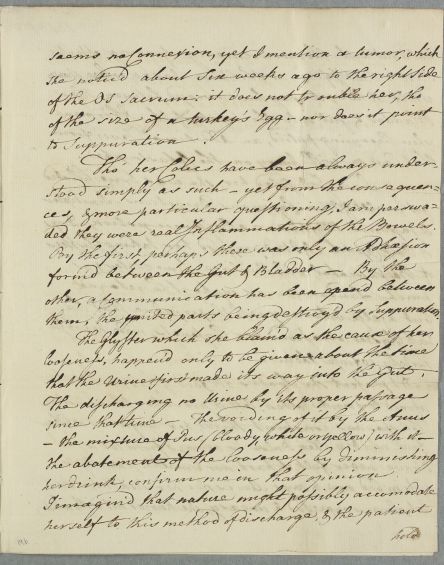 seems no Connexion, yet I mention a tumor, which
she notic'd about Six weeks ago to the right side
of the Os Sacrum: it does not trouble her, tho
of the size of a turkeys Egg - nor does it point
to Suppuration.
Tho' her Colics have been always under-
stood simply as such - yet from the consequen-
ces, & more particular questioning, I am perswa-
ded they were real Inflammations of the Bowels.
By the first perhaps there was only an Adhæsion
form'd between the Gut & Bladder - By the
other, a Communication has been opend between
them, the united parts being destroy'd by Suppuration.
The Glyster which she blam'd as the cause of her
looseness, happend only to be given about the time
that the Urine first made its way into the Gut.
The discharging no Urine by its proper passage
since that time - The voiding of it by the Anus
- the mixture of Pus (bloody, white or yellow) with it -
the abatement of the looseness by diminishing
her drink, confirm me in that opinion
I imagin'd that nature might possibly accomodate
herself to this method of discharge, & the patient
hold